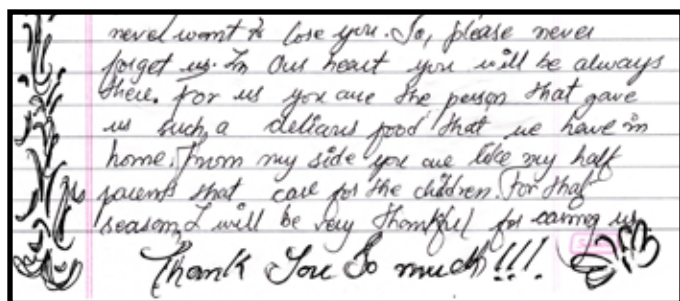 never want to lose you. So, please never
forget us. In our heart you will be always
there. For us you are the person that gave
us such a delians food that we have in
home. From my side you are like my half
parents that care for the children. For that
season, I will be very thankful for caring us
Thank You So much!!!.